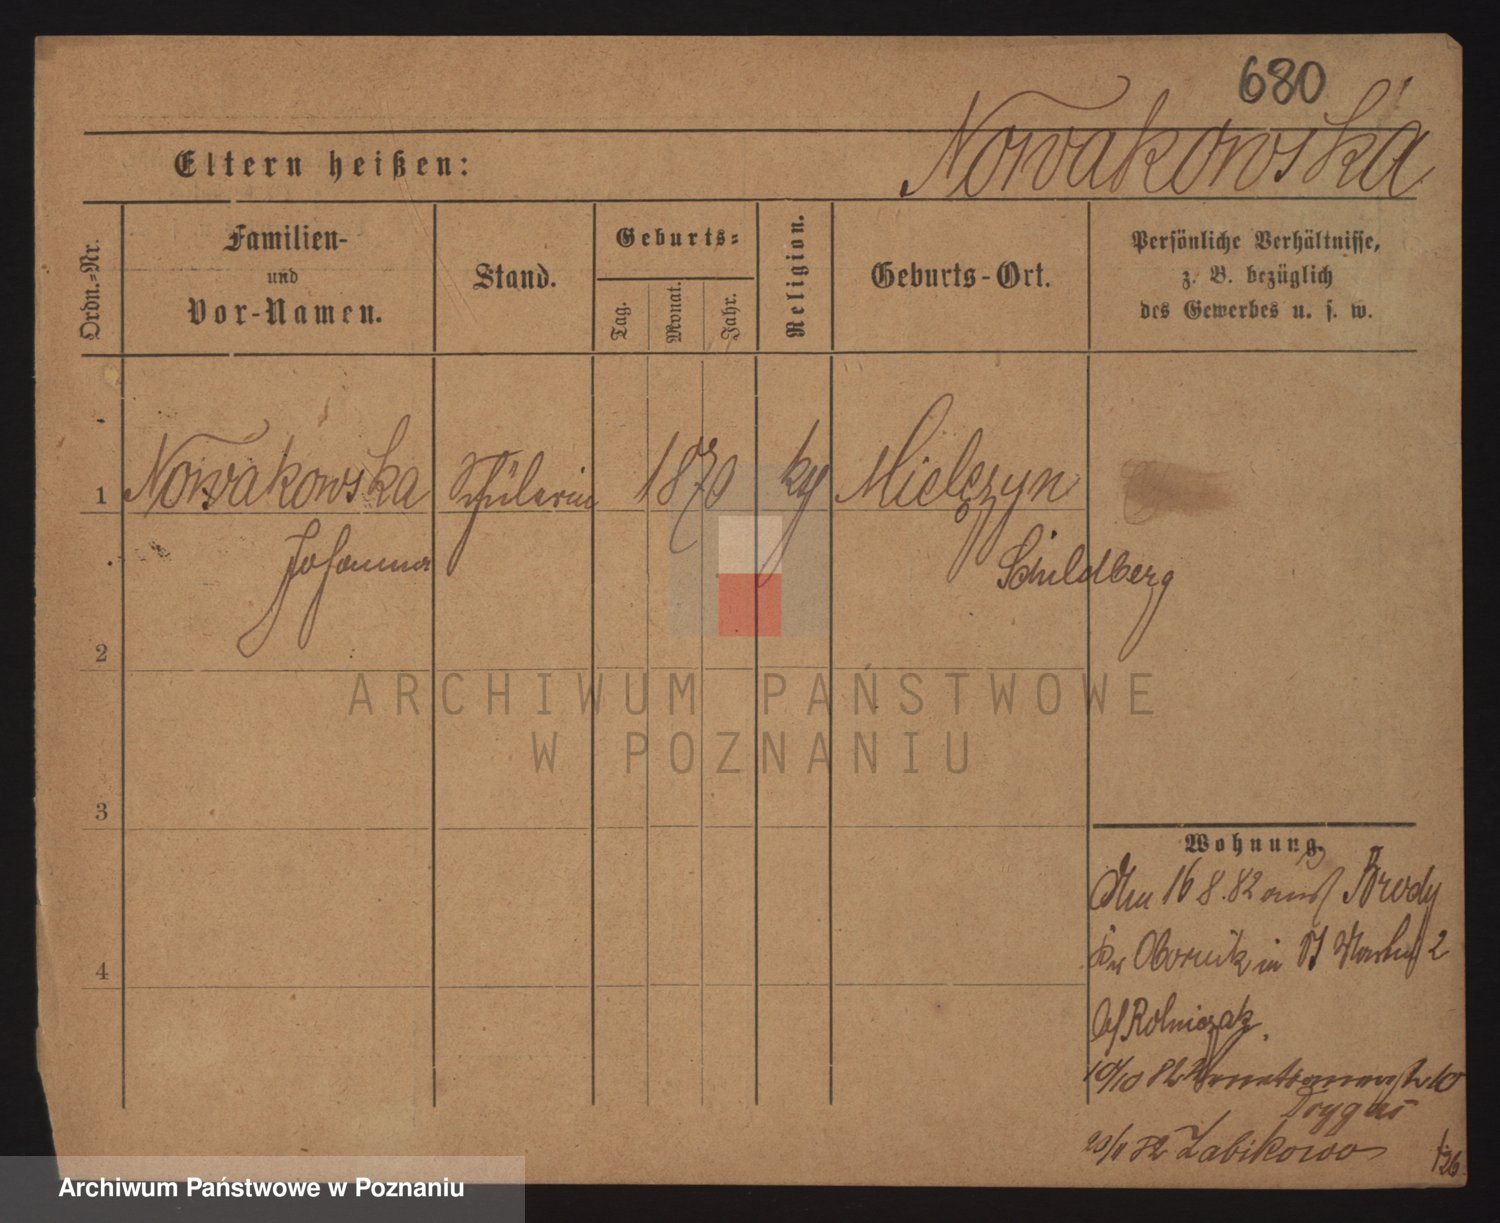 680
Nowakowska
Eltern heißen:
Ordn.-Nr.
Familien-
und
Vor-Namen.
Stand.
Geburts-
Tag.
Monat.
Jahr.
Religion.
Geburts-Ort.
Persönliche Verhältnisse,
z. B. bezüglich
des Gewerbes u. s. w.
1
Nowakowska
Johanna
Schülerin
1870
Mielęzyn
Schildberg
2
3
4
Wohnung.
16 8. 82 aus Brody
Obornik in St Martin 2
bei Rolniczak
10/10 82 10
20/11 82 Zabikowo
126
ARCHIWUM PAŃSTWOWE
W POZNANIU
Archiwum Państwowe w Poznaniu